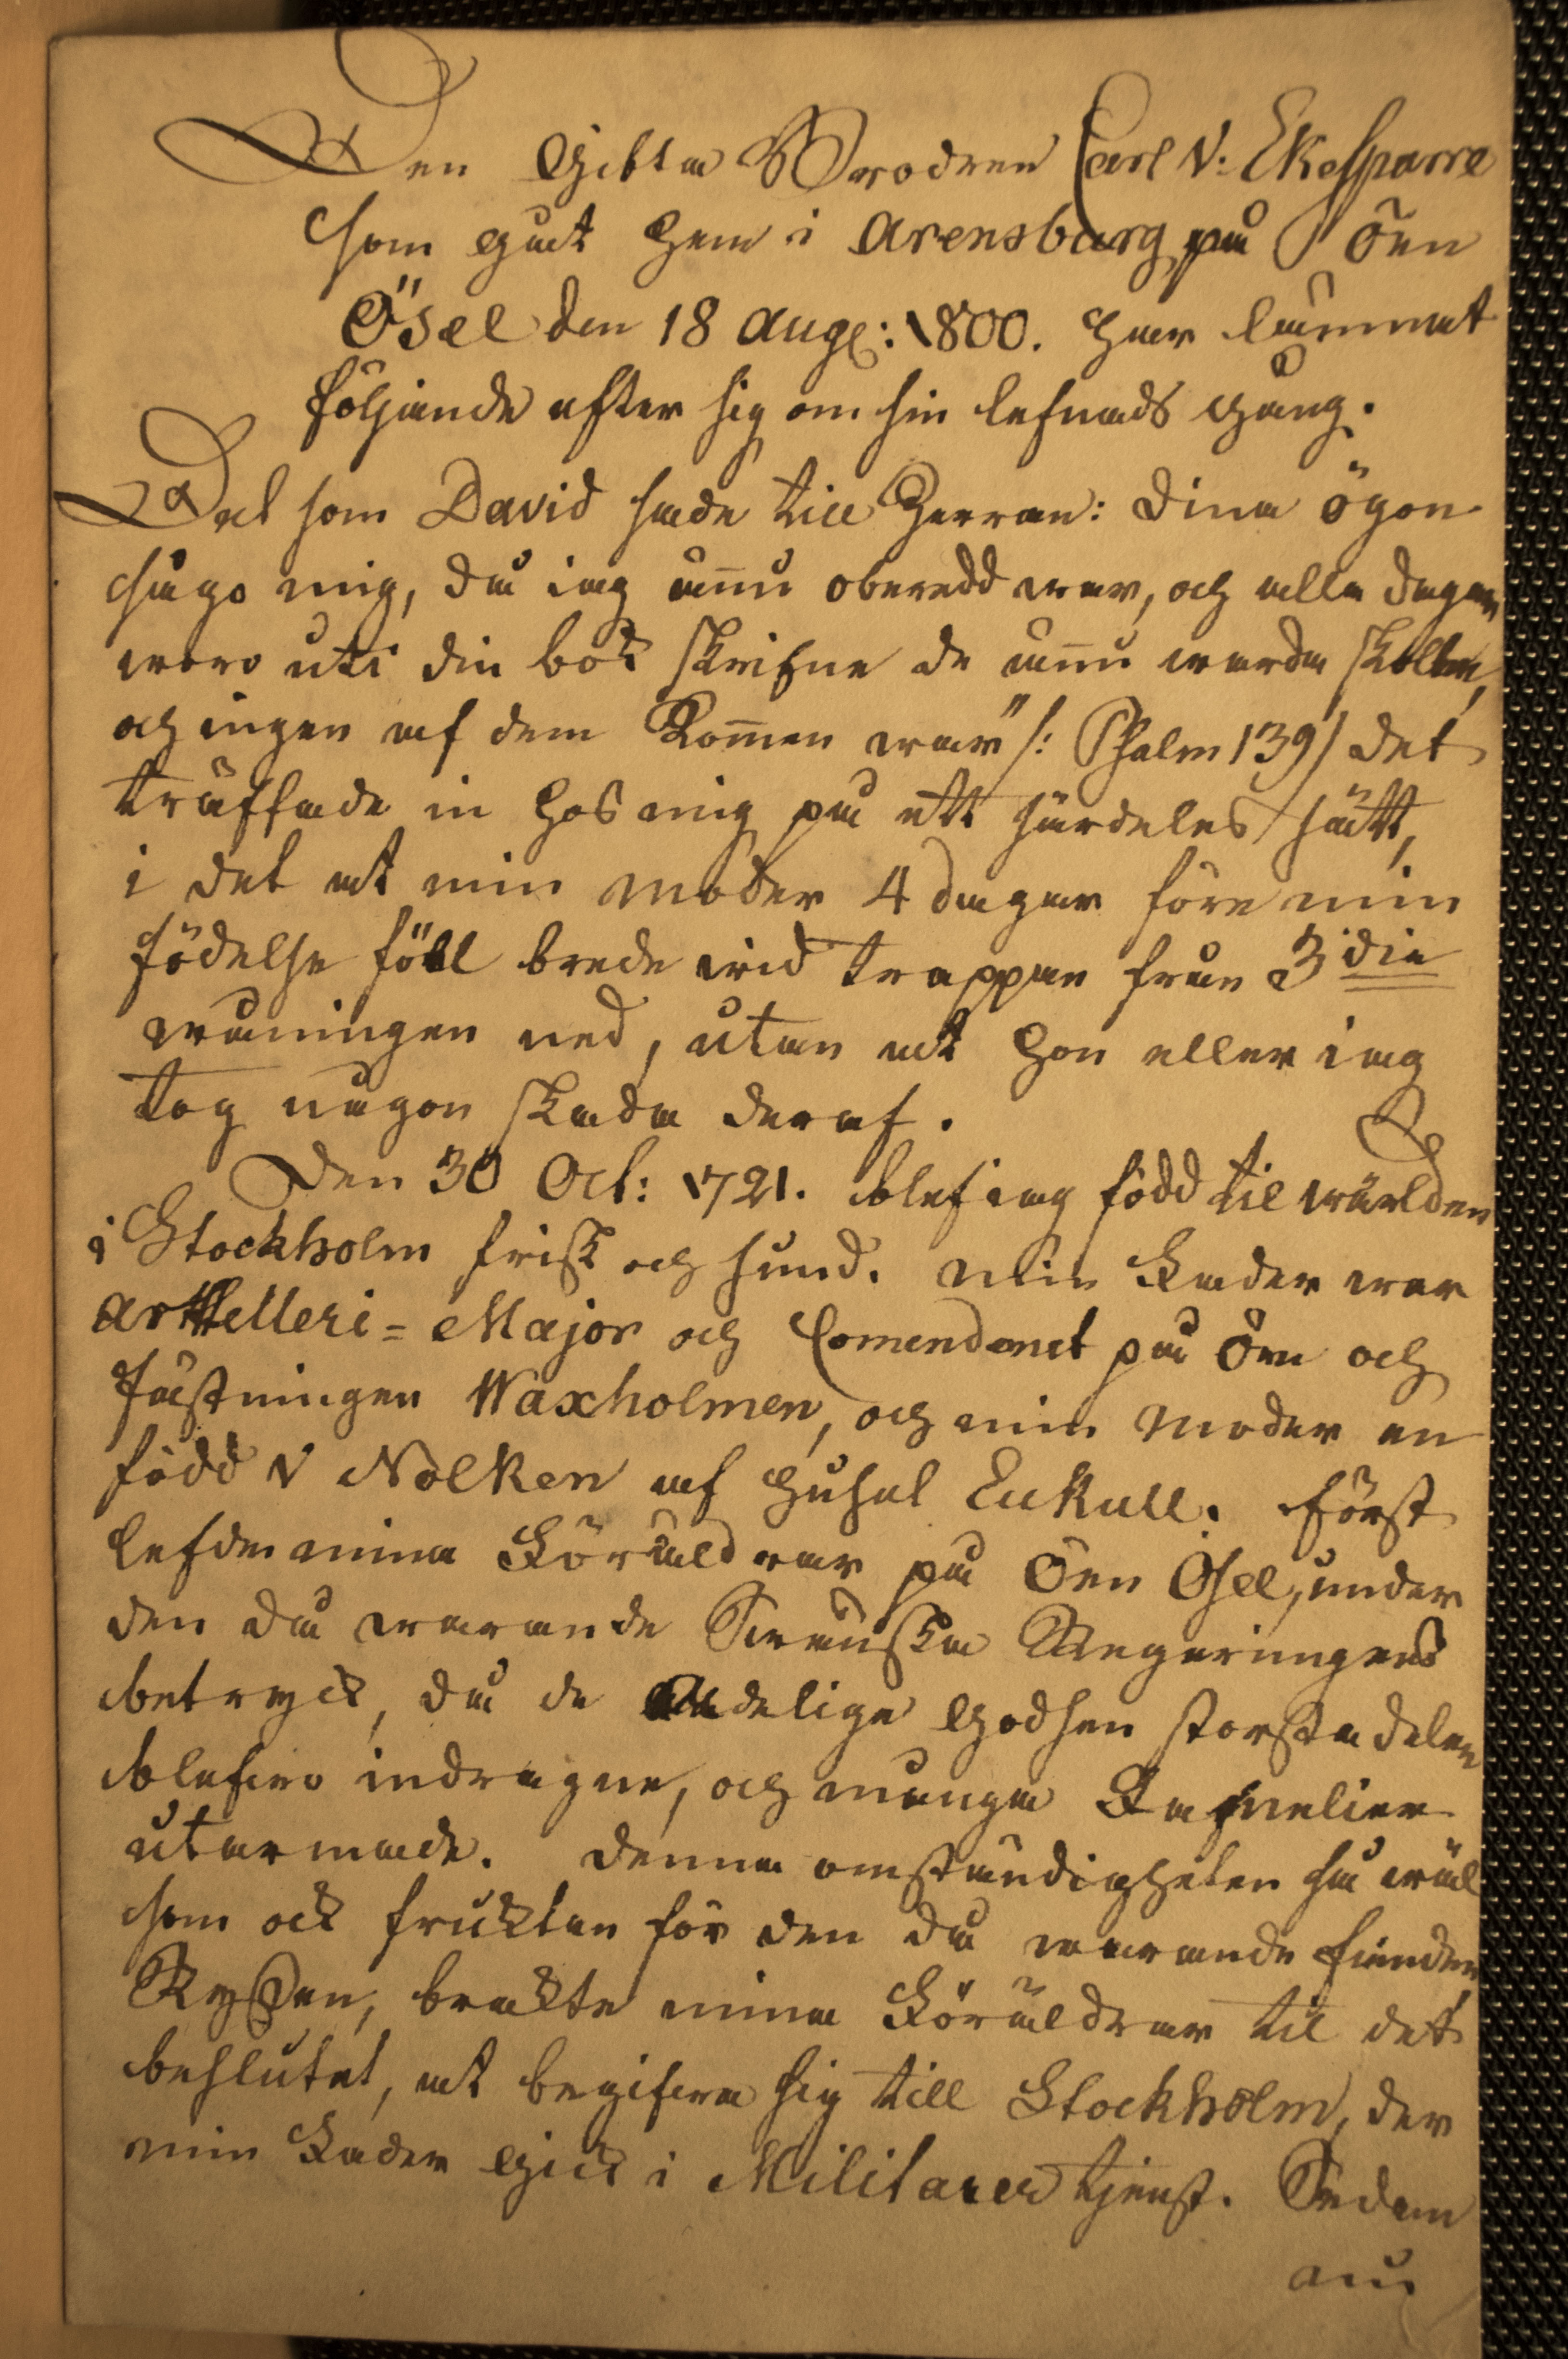 Den Gifta Brodren Carl V: Ekesparre
som gått hem i Arensburg på Öen
Ösel den 18 Aug: 1800. har lämnat
följande efter sig om sin lefnads gång.
Det som David sade till Herran: Dina ögon
sågo mig, då jag ännu oberedd war, och alla dagar
woro uti din bok skrifne de ännu warda skollen,
och ingen af dem kommen war" /: Psalm 139/ det
träffade in hos mig på ett särdeles sätt,
i det att min Moder 4 dagar före min
födelse föll brede wid trappan från 3die
wåningen ned, utan att hon eller jag
tog någon skada deraf.
Den 30 Oct: 1721. blef jag född til wärlden
i Stockholm frisk och sund. Min Fader war
Artelleri-Major och Comendant på Ön och
Fästningen Waxholmen, och min Moder en
född V Nolken af huset Enkull. Först
lefde mina Föräldrar på Öen Ösel, under
den då warande Swenska Regeringens
betryck, då de Adelige Godsen storsta delen
blefwo indragne, och många Familier
utarmade. Denna omständigheten så wäl
som ock fruktan för den då warande fienden
Ryssen, brakte mina Föräldrar til det
beslutet, at begifwa sig till Stockholm, der
min Fader gick i Militarer tjenst. Sedan
nu